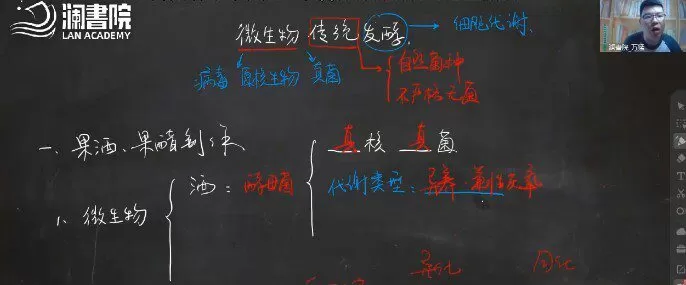 澜書院
LAN ACADEMY
微生物 传统发酵 → 细胞代谢
病毒 原核生物 真菌
自然菌种
不严格无菌
澜書院 万猛
一、果酒、果醋制作
真核 真菌
1、微生物
酒：酵母菌
代谢类型：异养·兼性厌氧
异化 同化